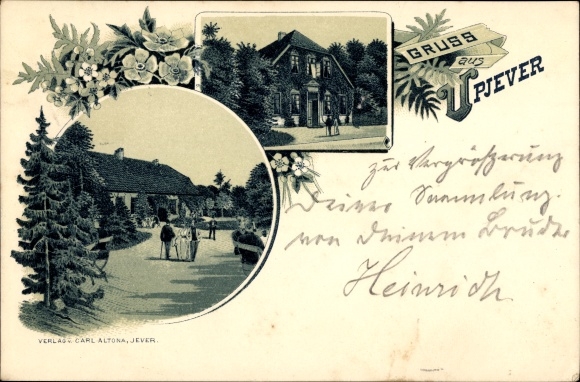 GRUSS
aus
UPJEVER
zur Vergrößerung
Deiner Sammlung.
von Deinem Bruder
Heinrich
VERLAG v. CARL ALTONA, JEVER.